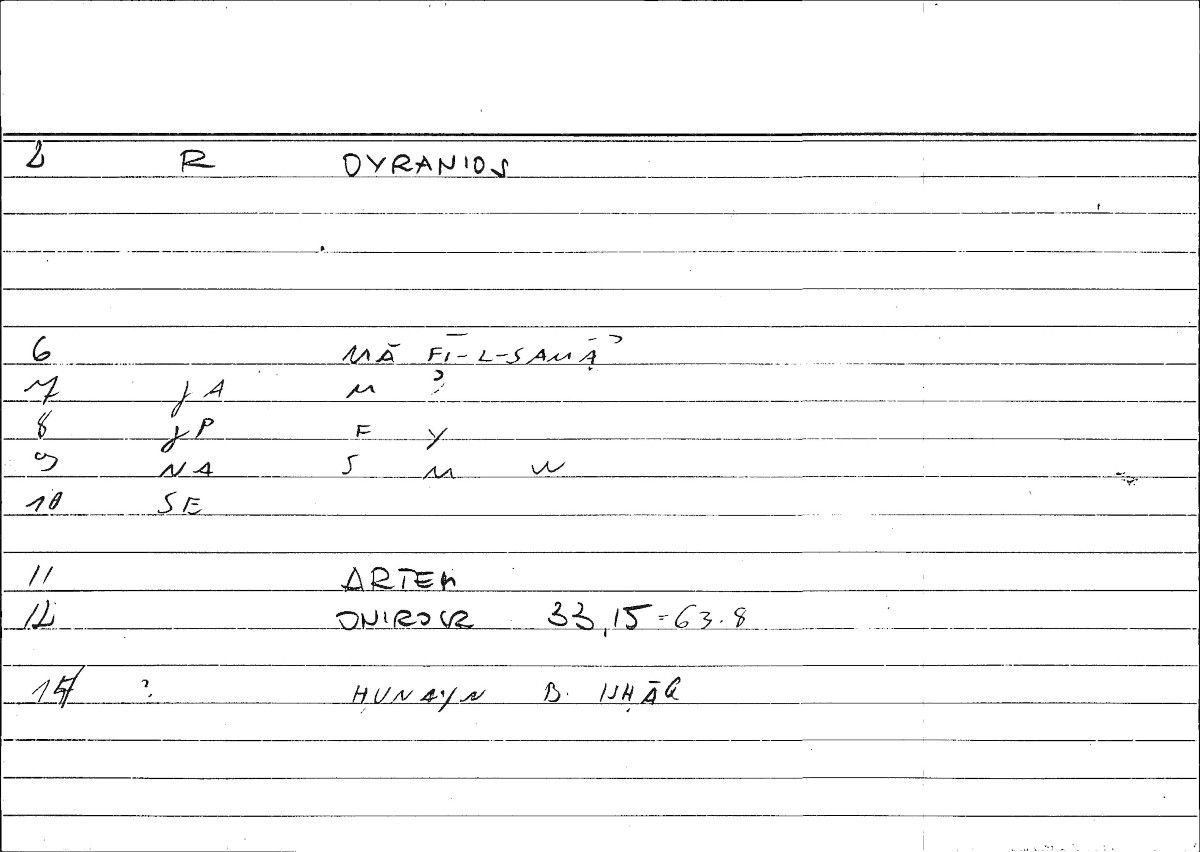 2 R OYRANIOS
6 MĀ FĪ-L-SAMĀʾ
7 JA M ʾ
8 JP F Y
9 NA S M W
10 SE
11 ARTEM
12 ONIROCR 33,15=63.8
15 ? ḤUNAYN B. ISḤĀQ